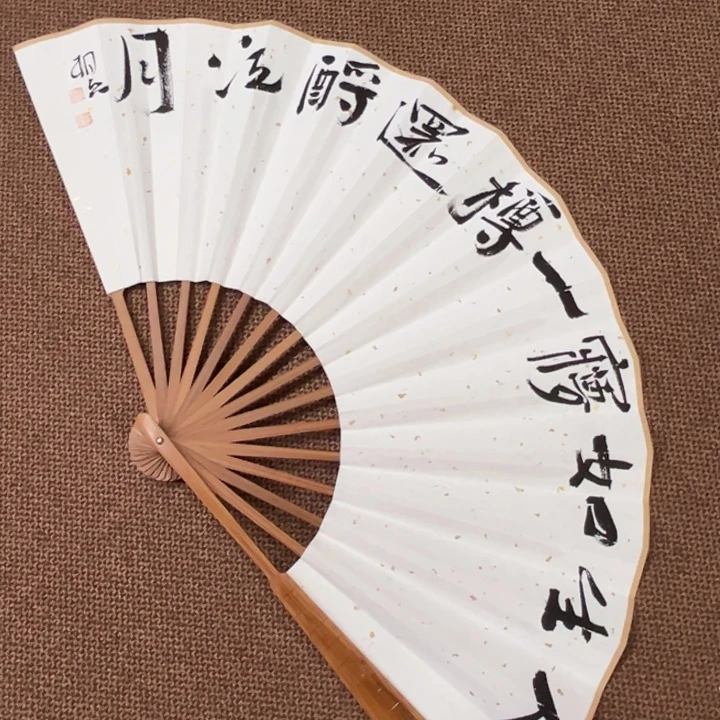 生如夢一樽還酹江月